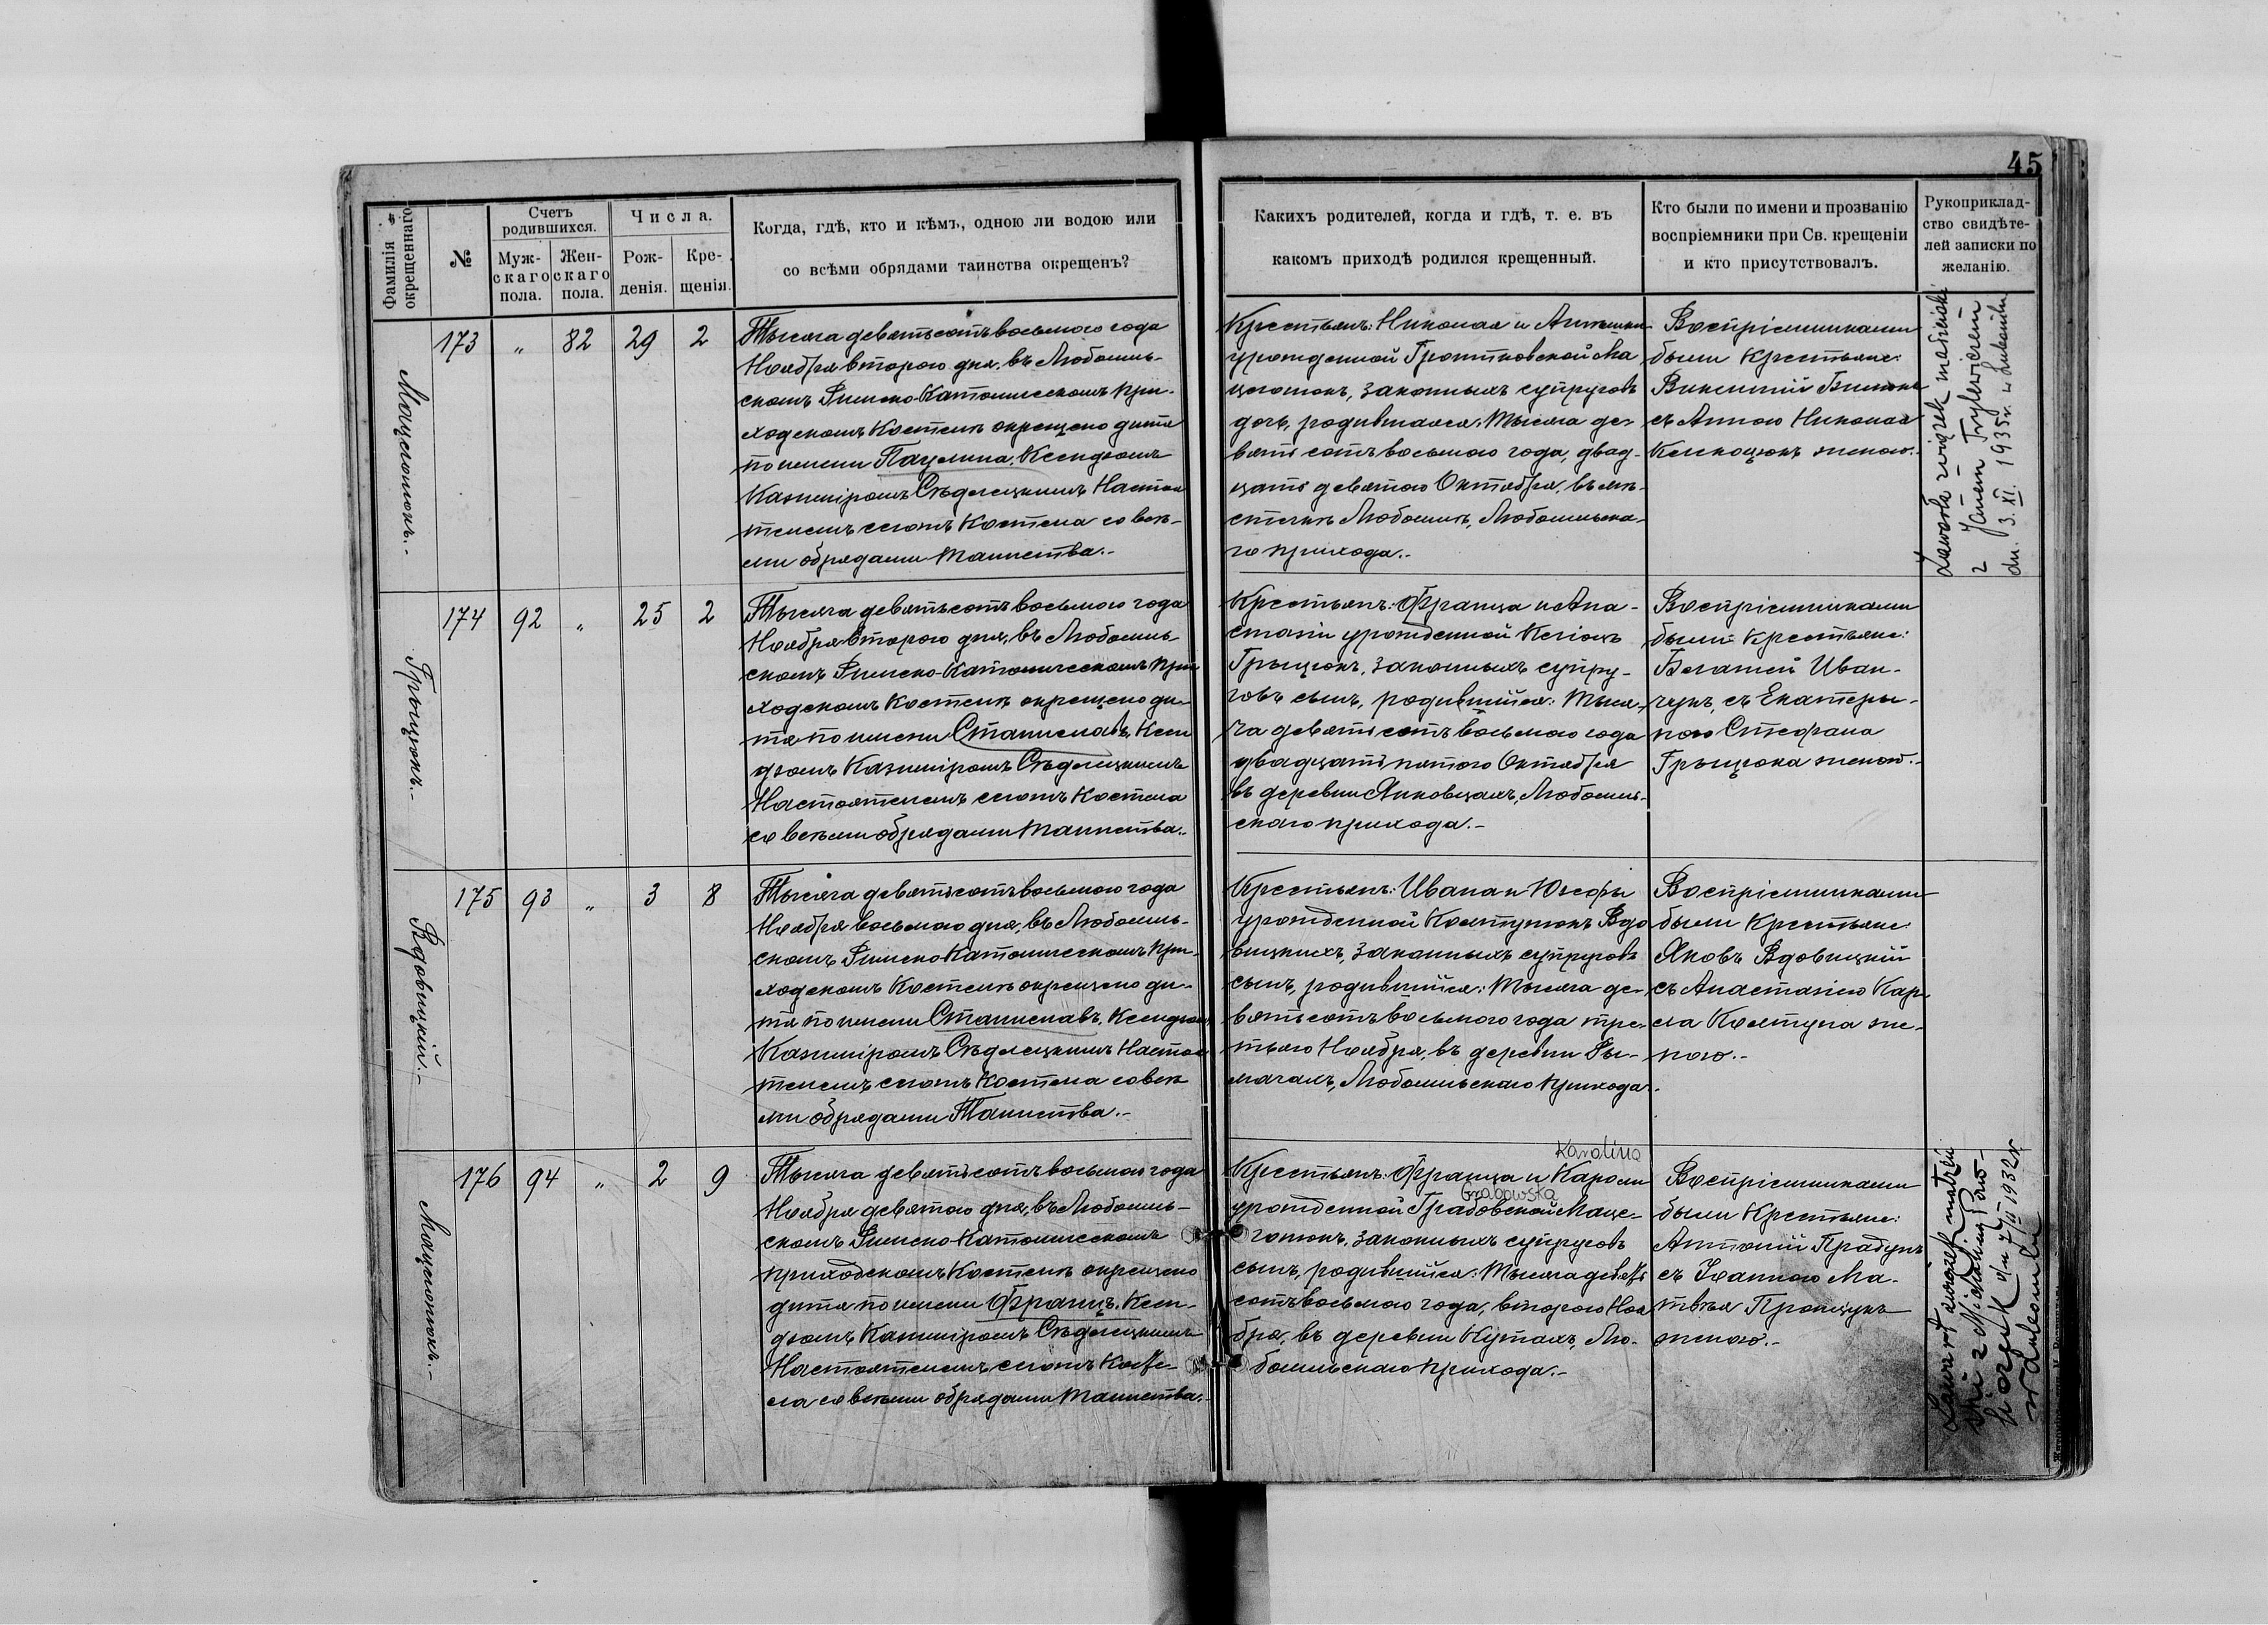 45
Фамилія
окрещеннаго
№
Счетъ
родившихся.
Муж-
скаго
пола.
Жен-
скаго
пола.
Числа.
Рож-
денія.
Кре-
щенія.
Когда, гдѣ, кто и кѣмъ, одною ли водою или
со всѣми обрядами таинства окрещенъ?
Какихъ родителей, когда и гдѣ, т. е. въ
какомъ приходѣ родился крещенный.
Кто были по имени и прозванію
воспріемники при Св. крещеніи
и кто присутствовалъ.
Рукоприклад-
ство свидѣте-
лей записки по
желанію.
Мацегонюкъ.-
173 „ 82 29 2
Тысяча девятьсотъ восьмого года
Ноября второго дня, въ Любомль-
скомъ Римско-Католическомъ при-
ходскомъ Костелѣ окрещено дитя
по имени Паулина, Ксендзомъ
Казимiромъ Сѣдлецкимъ Настоя
телемъ сего Костела со всѣ-
ми обрядами таинства.-
Крестьянъ: Николая и
урожденной Ма
законныхъ супруговъ
дочь, родившаяся: Тысяча де-
вятьсотъ восьмого года, двад-
цать девятого Октября, въ мѣ-
стечкѣ Любомлѣ, Любомльска-
го прихода.-
Воспріемниками
были Крестьяне:
Викентій
съ Анною Николая
женою.-
Zawarła związek małżeński
z Janem Trylewiczem
dn. 3. XI. 1935 r. w Luboml
Грыцюкъ.-
174 92 „ 25 2
Тысяча девятьсотъ восьмого года
Ноября второго дня, въ Любомль-
скомъ Римско-Католическомъ при
ходскомъ Костелѣ окрещено ди-
тя по имени Станиславъ, Ксен
дзомъ Казимiромъ Сѣдлецкимъ
Настоятелемъ сего Костела
со всѣми обрядами таинства.-
Крестьянъ: Франца и Ана-
стазіи урожденной
Грыцюкъ, законныхъ супру-
говъ сынъ, родившійся: Тыся-
ча девятьсотъ восьмого года
двадцать пятого Октября
въ деревни Янковцахъ, Любомль-
скаго прихода.-
Воспріемниками
были Крестьяне:
Иван-
чукъ, съ Екатеры-
ною Стефана
Грыцюка женою.-
Вдовицкій.-
175 93 „ 3 8
Тысяча девятьсотъ восьмого года
Ноября восьмого дня, въ Любомль-
скомъ Римско-Католическомъ при-
ходскомъ Костелѣ окрещено ди-
тя по имени Станиславъ, Ксендзомъ
Казимiромъ Сѣдлецкимъ Настоя
телемъ сего Костела со всѣ
ми обрядами Таинства.-
Крестьянъ: Ивана и Юзефы
урожденной Вдо
вицкихъ, законныхъ супруговъ
сынъ, родившійся: Тысяча де-
вятьсотъ восьмого года тре-
тьяго Ноября, въ деревни Ры-
мачахъ, Любомльскаго прихода.-
Воспріемниками
были Крестьяне:
Яковъ Вдовицкій
съ Анастазіею Кар-
ла Колтуна же-
ною.-
Мацегонюкъ.-
176 94 „ 2 9
Тысяча девятьсотъ восьмого года
Ноября девятого дня, въ Любомль-
скомъ Римско-Католическомъ
приходскомъ Костелѣ окрещено
дитя по имени Францъ, Ксен-
дзомъ Казимiромъ Сѣдлецкимъ
Настоятелемъ сего Косте-
ла со всѣми обрядами таинства.-
Karolina
Крестьянъ: Франца и Кароли
Grabowska
урожденной Грабовской Маце-
гонюкъ, законныхъ супруговъ
сынъ, родившійся: Тысяча девять
сотъ восьмого года, второго Ноя
бря, въ деревни Кутахъ, Лю-
бомльскаго прихода.-
Воспріемниками
были Крестьяне:
Антоній
съ Іоанною Ма-
твѣя
женою.-
Zawarł związek małżeń
ski z
dn 7/II 1932 r.
w Lubomlu